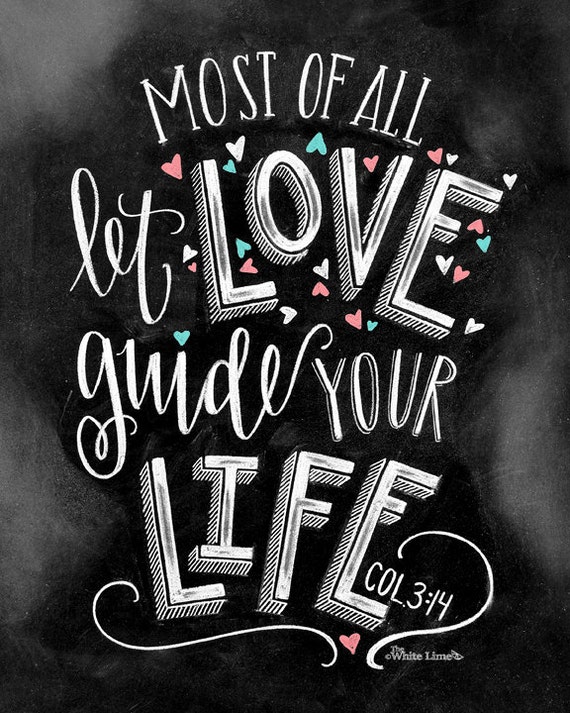 MOST OF ALL
let LOVE
guide YOUR
LIFE
COL. 3:14
The
©White Lime